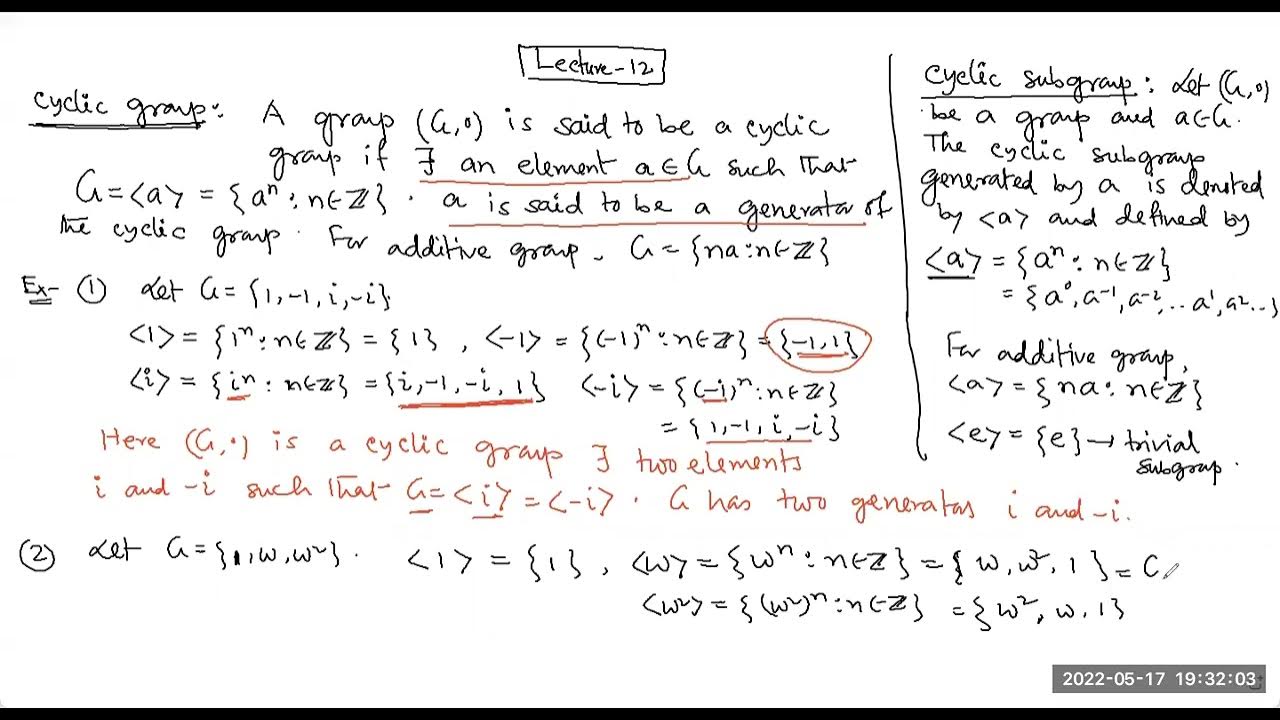 Lecture-12
Cyclic group: A group (G,o) is said to be a cyclic
group if ∃ an element a∈G such that
G=<a> = {aⁿ : n∈ℤ} . a is said to be a generator of
the cyclic group. For additive group, G = {na:n∈ℤ}
Ex- ① Let G = {1,-1,i,-i}.
<1> = {1ⁿ : n∈ℤ} = {1} , <-1> = {(-1)ⁿ : n∈ℤ} = {-1,1}
<i> = {iⁿ : n∈ℤ} = {i,-1,-i,1} <-i> = {(-i)ⁿ : n∈ℤ}
= {1,-1,i,-i}
Here (G,·) is a cyclic group ∃ two elements
i and -i such that G = <i> = <-i> . G has two generators i and -i.
② Let G = {1,w,w²} . <1> = {1} , <w> = {wⁿ : n∈ℤ} = {w,w²,1} = C
<w²> = {(w²)ⁿ : n∈ℤ} = {w²,w,1}
Cyclic subgroup : Let (G,o)
be a group and a∈G.
The cyclic subgroup
generated by a is denoted
by <a> and defined by
<a> = {aⁿ : n∈ℤ}
= {a⁰,a⁻¹,a⁻²,..a¹,a²..}
For additive group,
<a> = {na : n∈ℤ}
<e> = {e} → trivial
subgroup.
2022-05-17 19:32:03